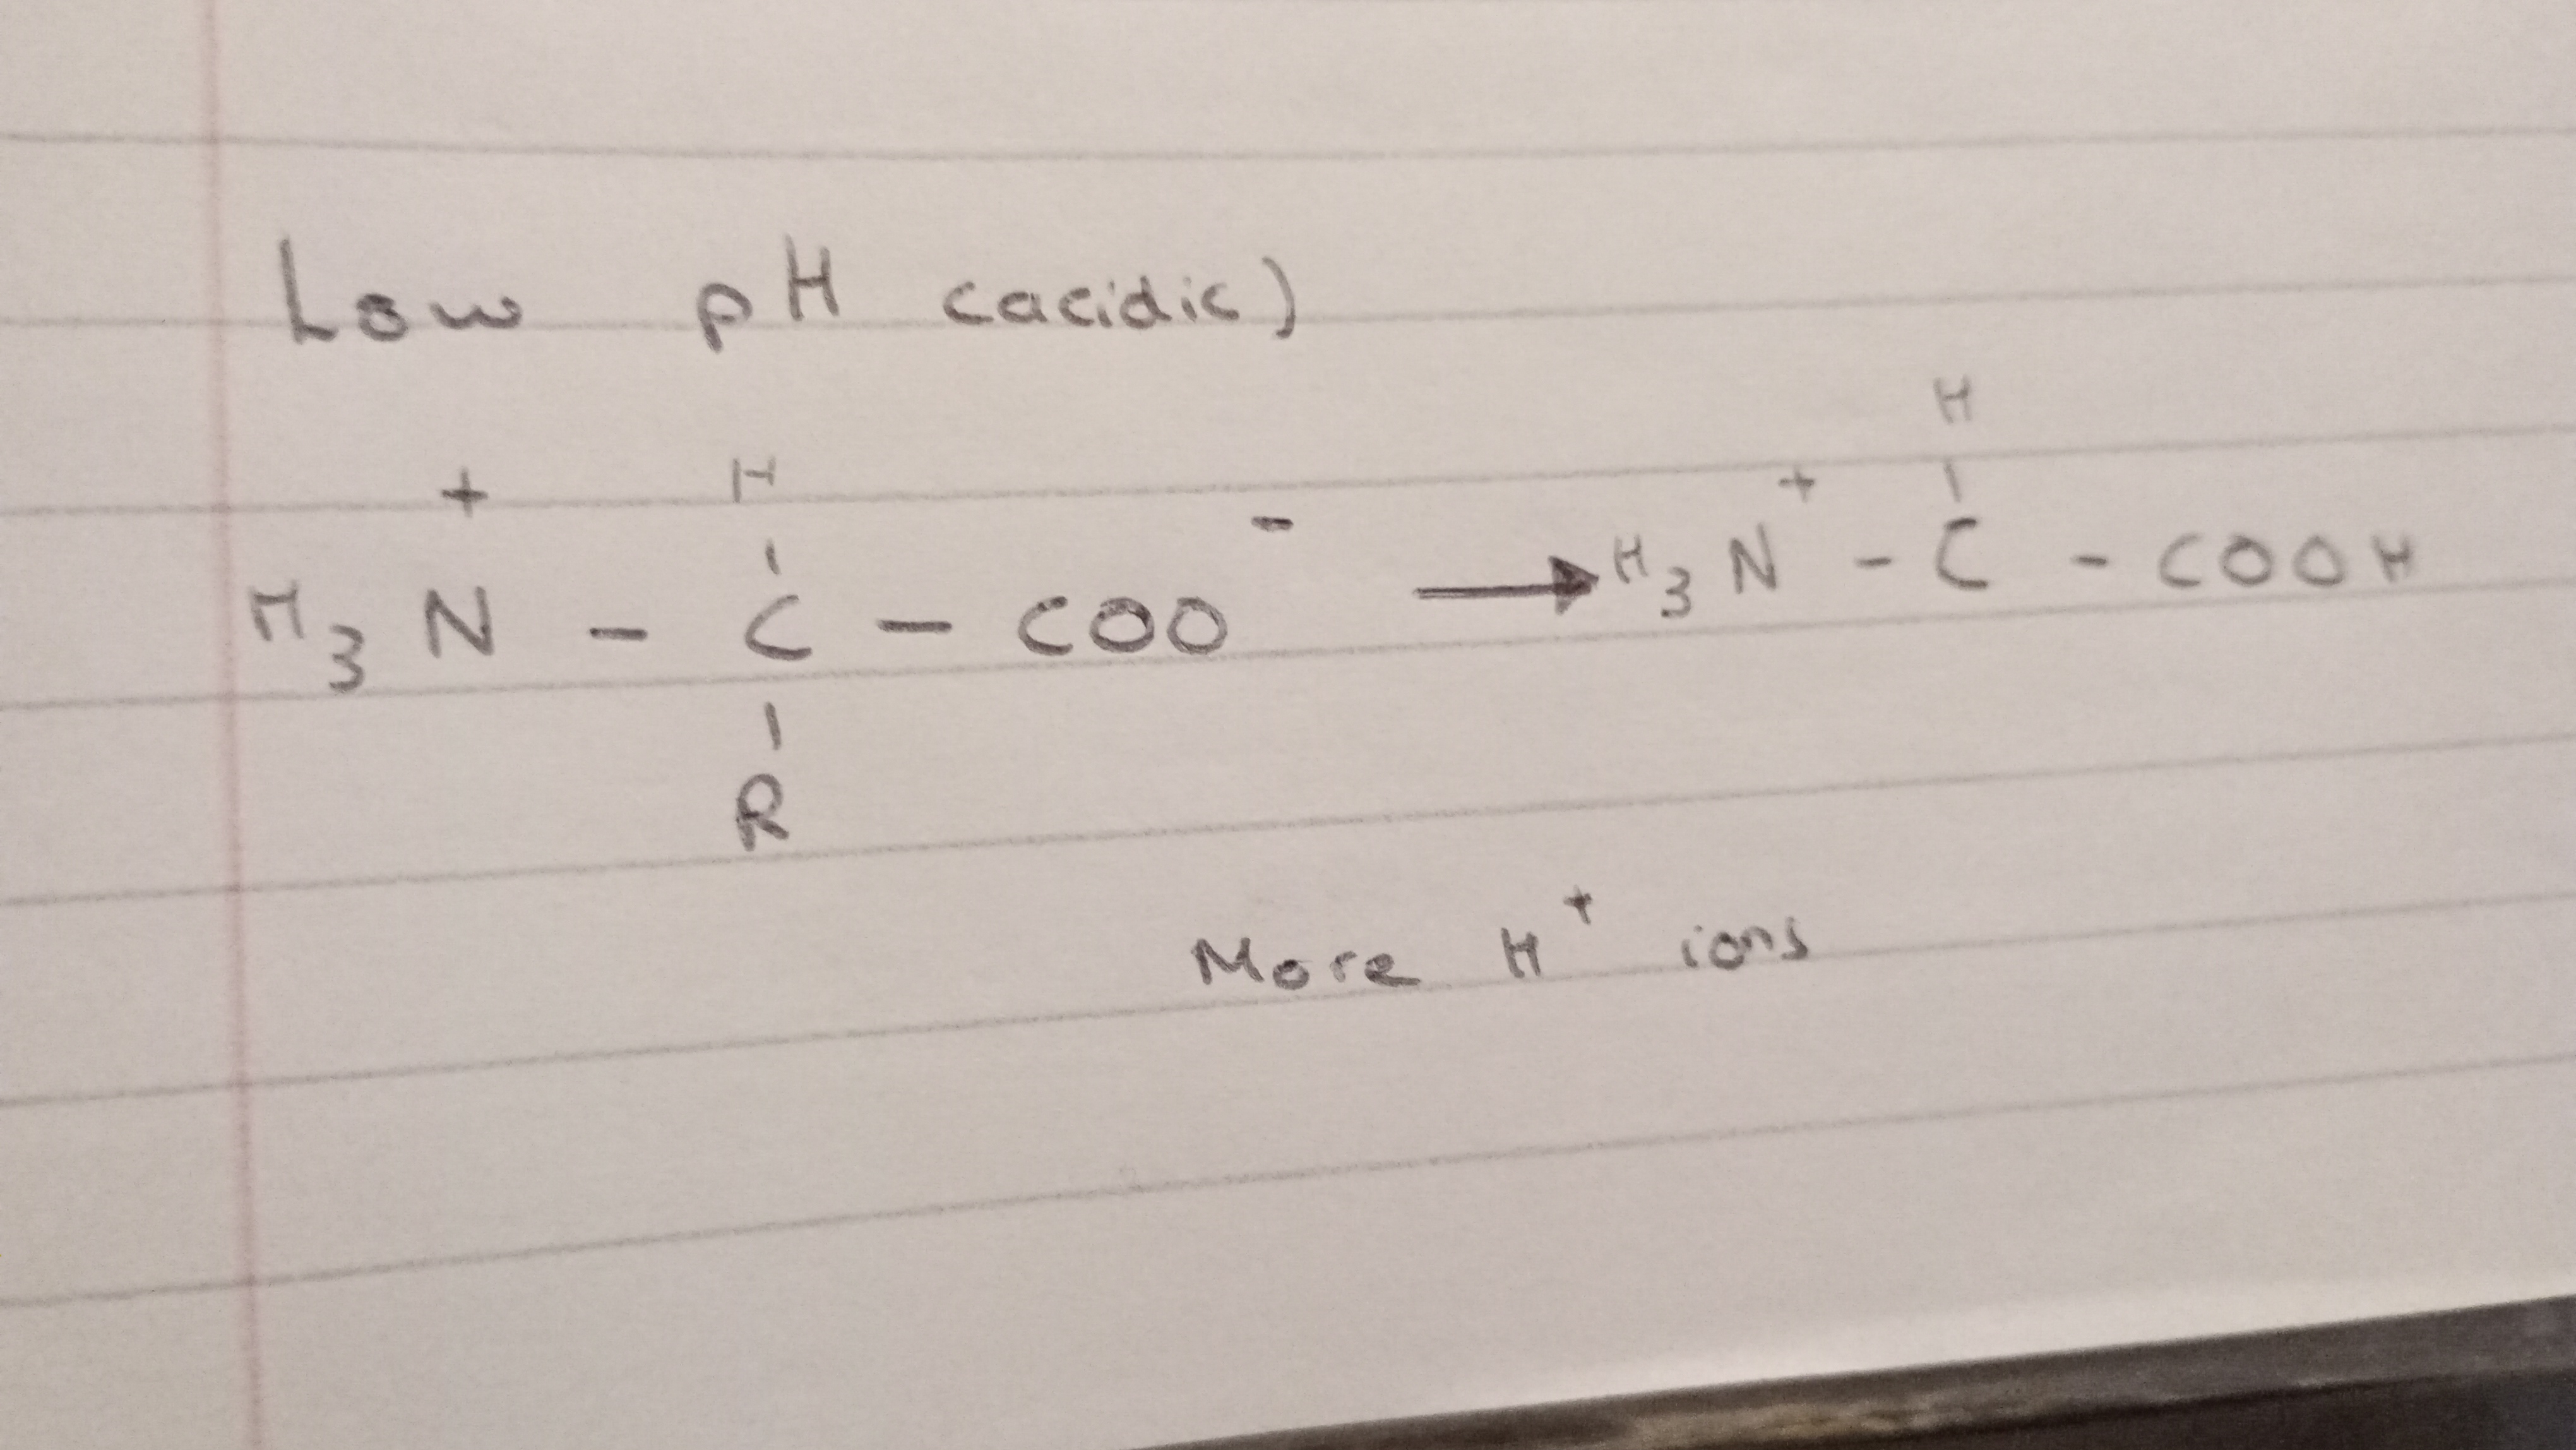 Low pH (acidic)
H
+ H +
H₃N - C - COO⁻ → H₃N - C - COOH
R
More H⁺ ions